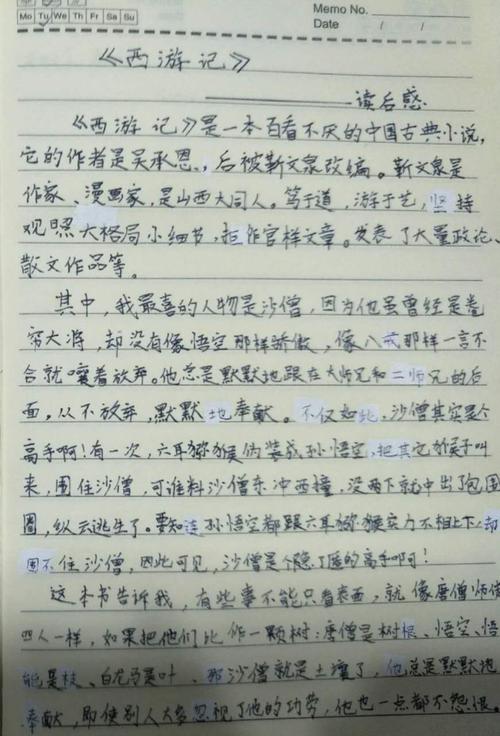 Mo Tu We Th Fr Sa Su
Memo No.
Date / /
《西游记》
——读后感
《西游记》是一本百看不厌的中国古典小说,
它的作者是吴承恩,后被靳文泉改编。靳文泉是
作家、漫画家,是山西大同人。笃于道,游于艺,坚持
观照大格局小细节,拒作官样文章。发表了大量政论、
散文作品等。
其中,我最喜的人物是沙僧,因为他虽曾经是卷
帘大将,却没有像悟空那样骄傲,像八戒那样一言不
合就嚷着放弃。他总是默默地跟在大师兄和二师兄的后
面,从不放弃,默默地奉献。不仅如此,沙僧其实是个
高手啊!有一次,六耳猕猴伪装成孙悟空,把其它猴子叫
来,围住沙僧,可谁料沙僧东冲西撞,没两下就冲出了包围
圈,纵云逃生了。要知连孙悟空都跟六耳猕猴实力不相上下,却
围不住沙僧,因此可见,沙僧是个隐了匿的高手啊!
这本书告诉我,有些事不能只看表面,就像唐僧师徒
四人一样,如果把他们比作一颗树:唐僧是树根、悟空、悟
能是枝、白龙马是叶、那沙僧就是土壤了,他总是默默地
奉献,即使别人大多忽视了他的功劳,他也一点都不怨恨。